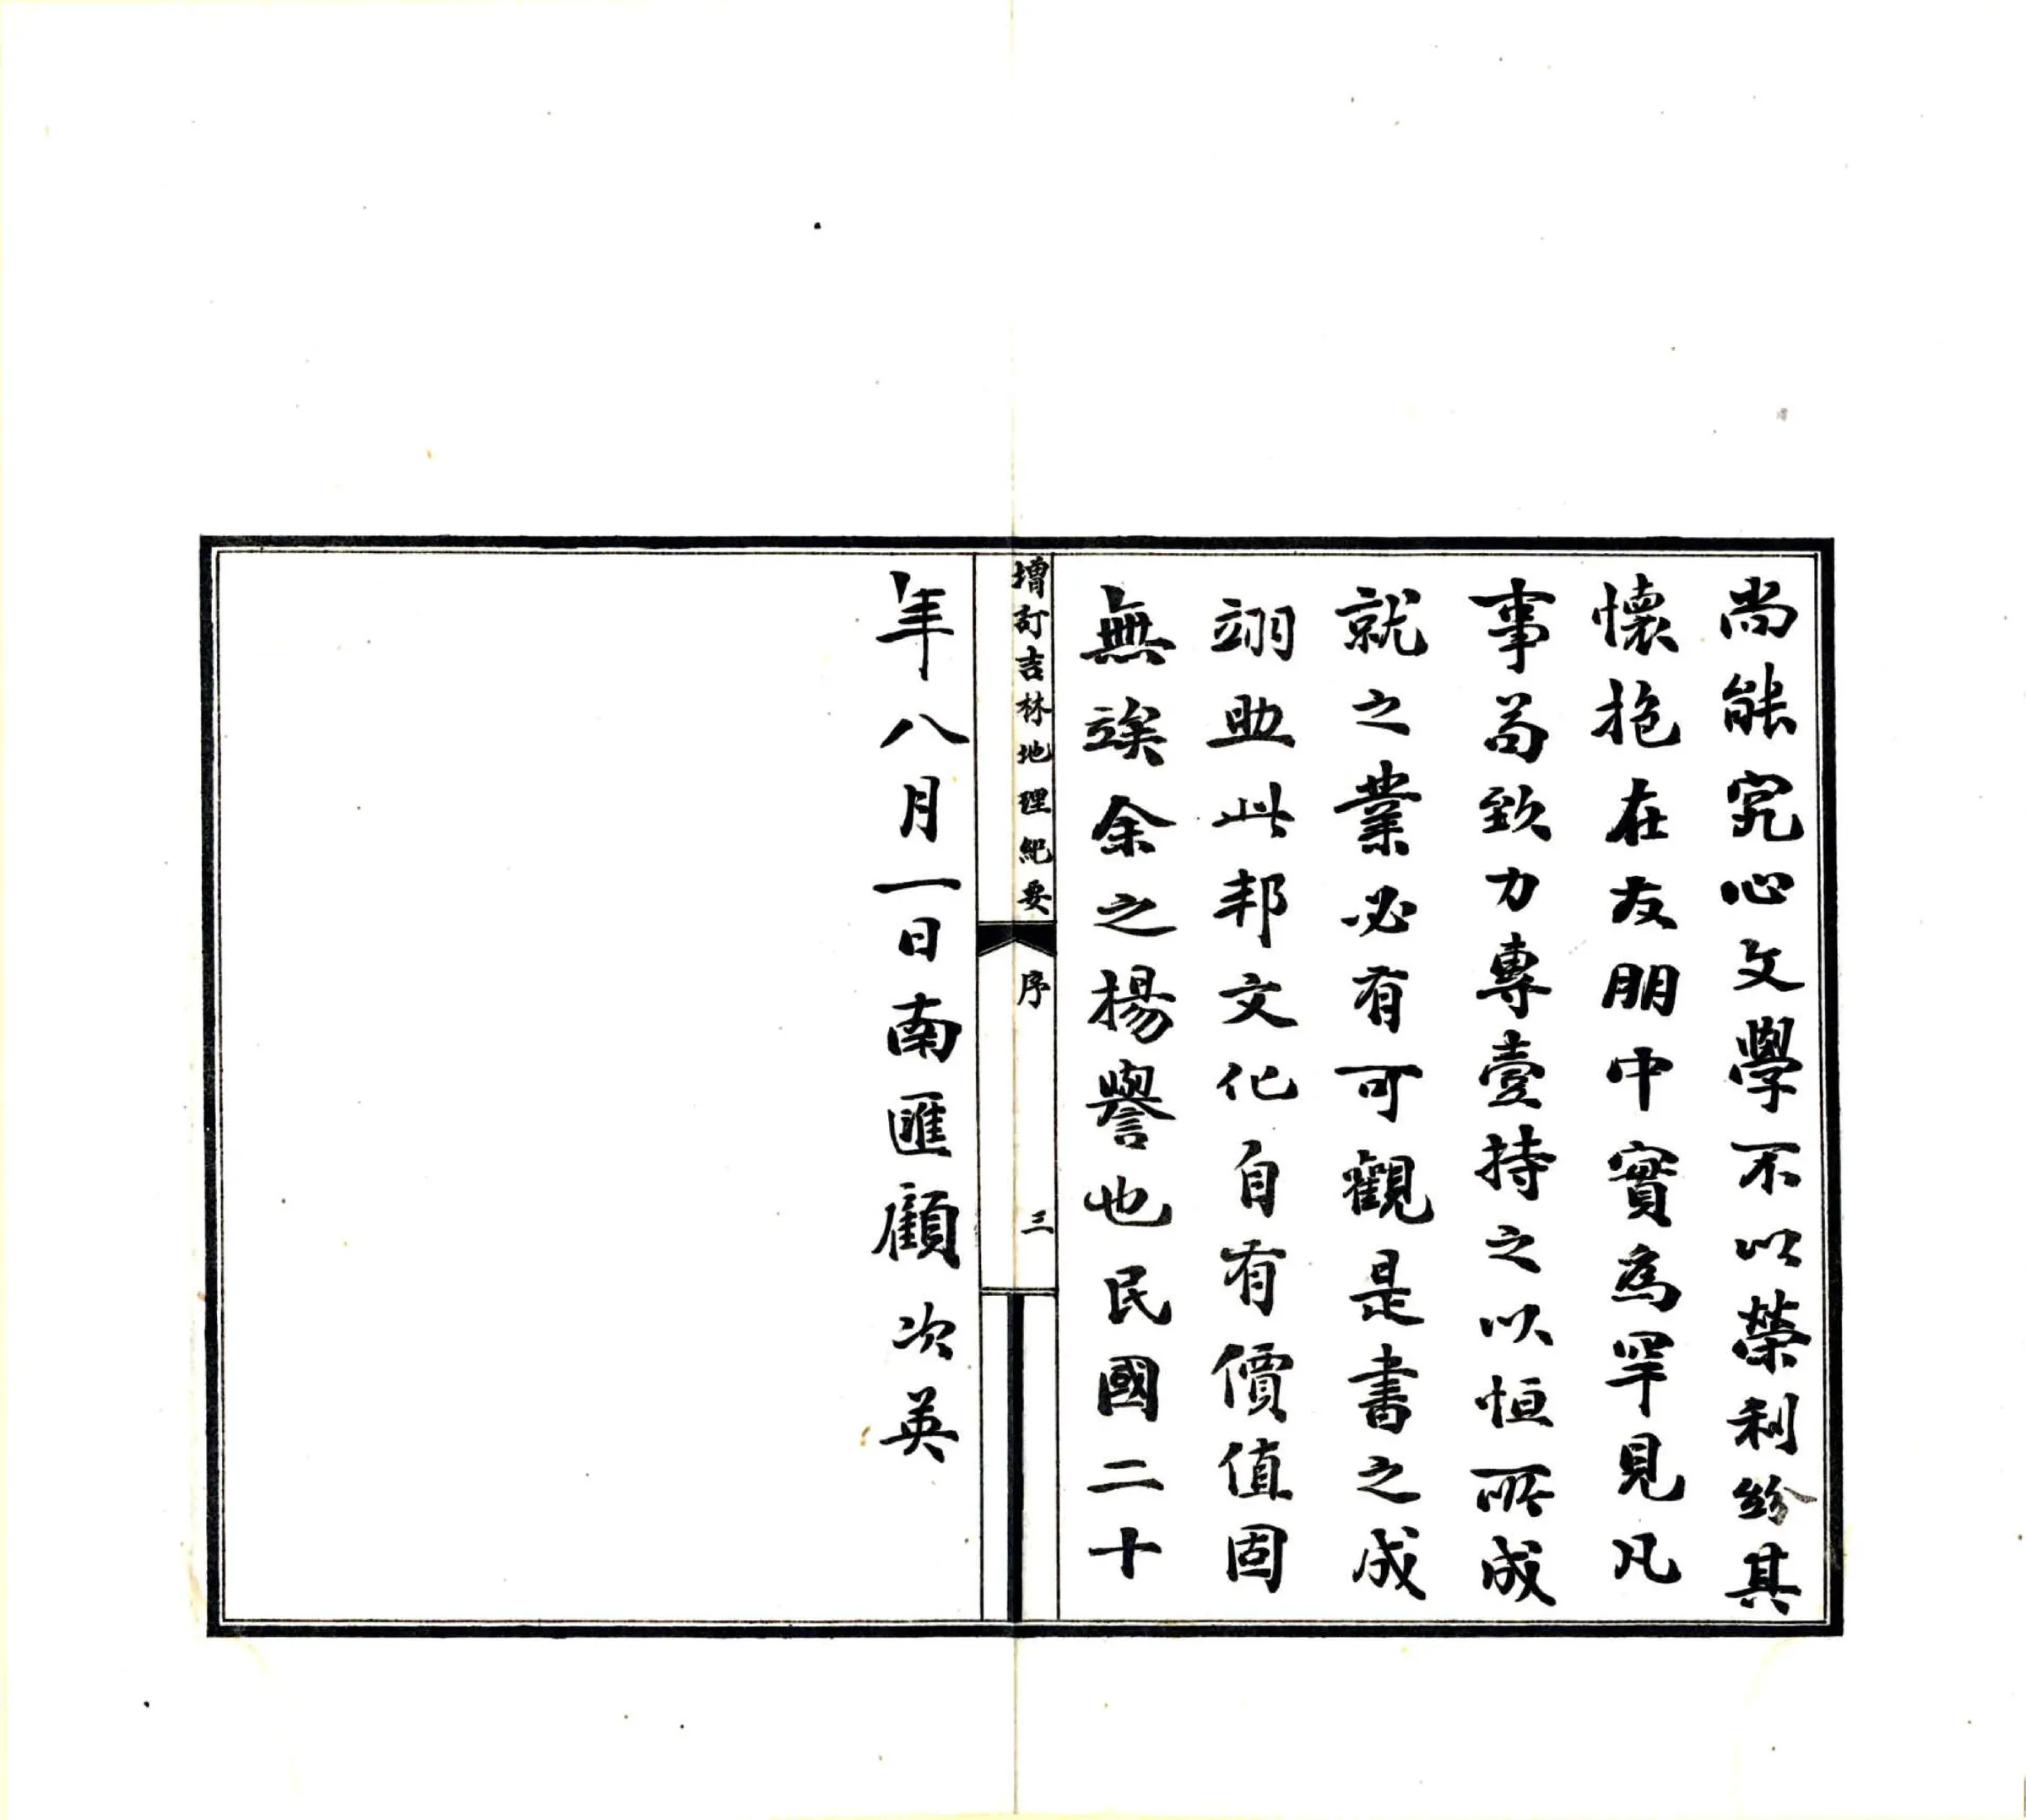 尚能究心文學不以榮利紛其
懷抱在友朋中實為罕見凡
事苟致力專壹持之以恒所成
就之業必有可觀是書之成
翊助此邦文化自有價值固
無竢余之揚譽也民國二十
增訂吉林地理紀要
序
三
年八月一日南匯顧次英